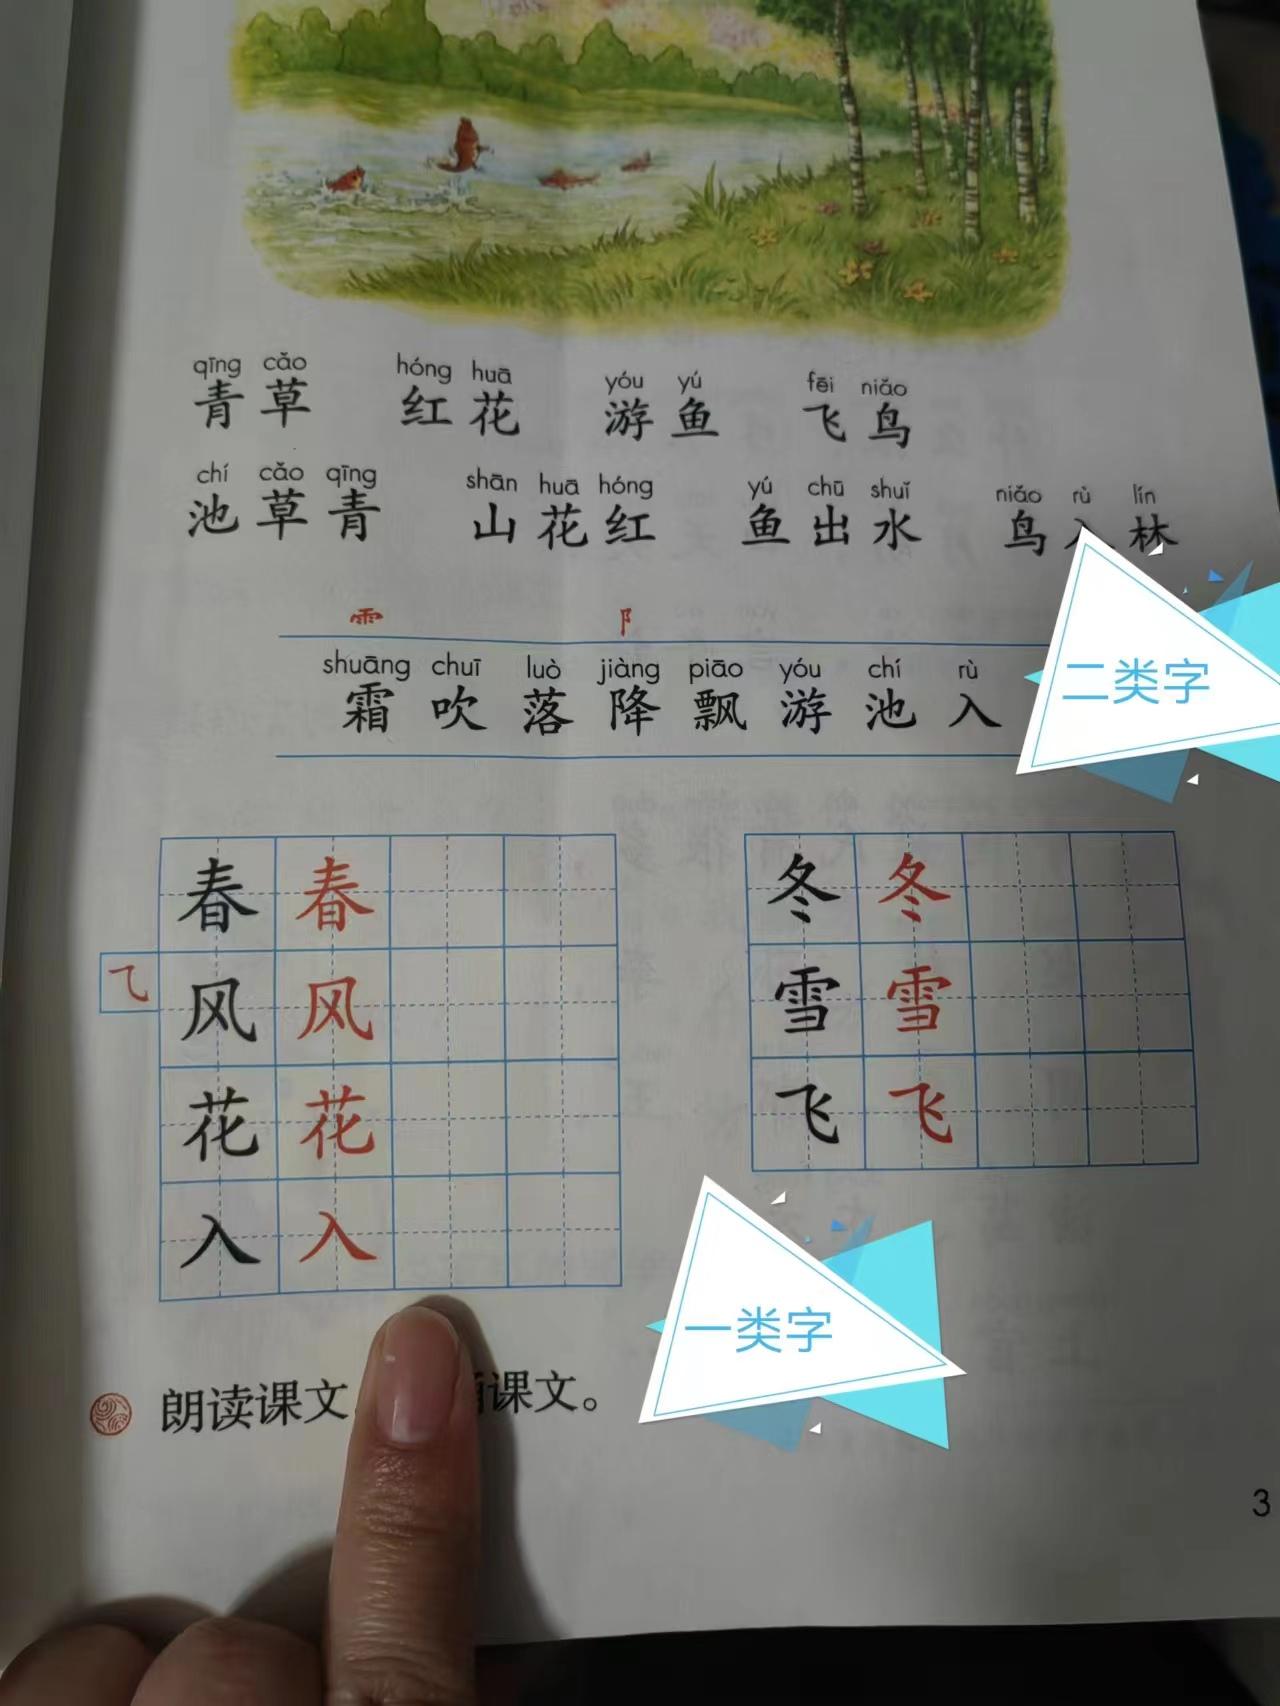 qīng cǎo hóng huā yóu yú fēi niǎo
青草 红花 游鱼 飞鸟
chí cǎo qīng shān huā hóng yú chū shuǐ niǎo rù lín
池草青 山花红 鱼出水 鸟入林
⻗ 阝
shuāng chuī luò jiàng piāo yóu chí rù
霜 吹 落 降 飘 游 池 入
二类字
春 春 冬 冬
⺄ 风 风 雪 雪
花 花 飞 飞
入 入
一类字
朗读课文 诵课文。
3